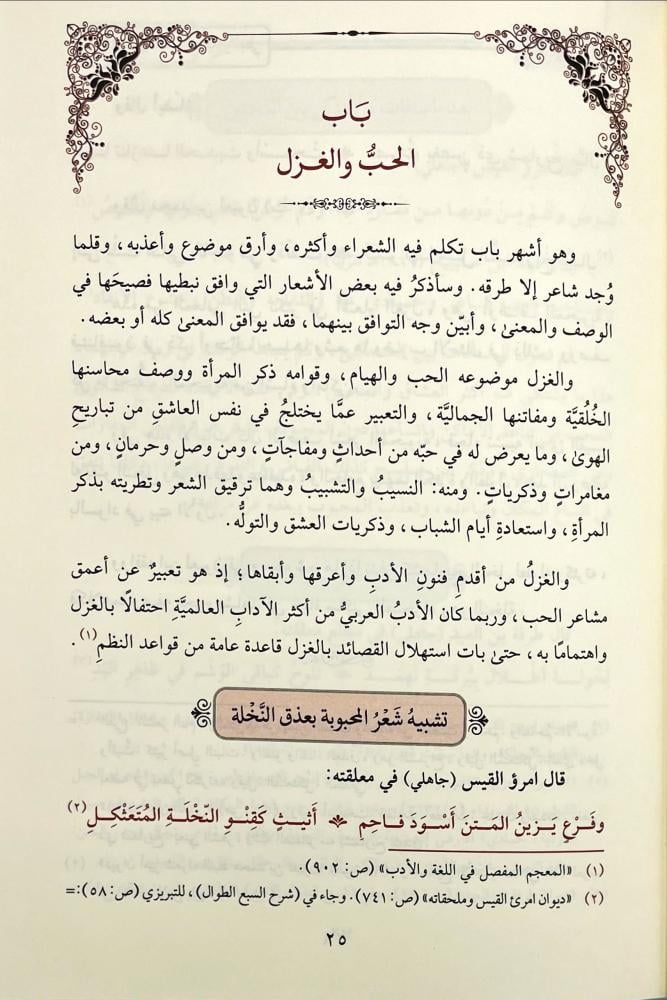 بَـاب
الحبُّ والغـزل
وهو أشهر باب تكلم فيه الشعراء وأكثره، وأرق موضوع وأعذبه، وقلما
وُجد شاعر إلا طرقه. وسأذكرُ فيه بعض الأشعار التي وافق نبطيها فصيحَها في
الوصف والمعنىٰ، وأبيّن وجه التوافق بينهما، فقد يوافق المعنىٰ كله أو بعضه.
والغزل موضوعه الحب والهيام، وقوامه ذكر المرأة ووصف محاسنها
الخُلُقيَّة ومفاتنها الجماليَّة، والتعبير عمَّا يختلجُ في نفس العاشقِ من تباريحِ
الهوىٰ، وما يعرض له في حبّه من أحداثٍ ومفاجآتٍ، ومن وصلٍ وحرمانٍ، ومن
مغامراتٍ وذكرياتٍ. ومنه: النسيبُ والتشبيبُ وهما ترقيق الشعر وتطريته بذكر
المرأةِ، واستعادةِ أيام الشباب، وذكريات العشق والتولُّه.
والغزلُ من أقدمِ فنونِ الأدبِ وأعرقها وأبقاها؛ إذ هو تعبيرٌ عن أعمق
مشاعر الحب، وربما كان الأدبُ العربيُّ من أكثر الآدابِ العالميَّةِ احتفالًا بالغزل
واهتمامًا به، حتىٰ بات استهلال القصائد بالغزل قاعدة عامة من قواعد النظمِ(١).
تشبيه شَعْرُ المحبوبة بعذق النَّخْلة
قال امرؤ القيس (جاهلي) في معلقته:
وفَـرْعٍ يَـزيـنُ المَـتـنَ أَسْـوَدَ فـاحِـمٍ أَثيـثٍ كَقِـنْـوِ النَّخْلَـةِ المُتَعَثْكِـلِ(٢)
(١) «المعجم المفصل في اللغة والأدب» (ص: ٩٠٢).
(٢) «ديوان امرئ القيس وملحقاته» (ص: ٧٤١). وجاء في (شرح السبع الطوال)، للتبريزي (ص: ٥٨):=
٢٥